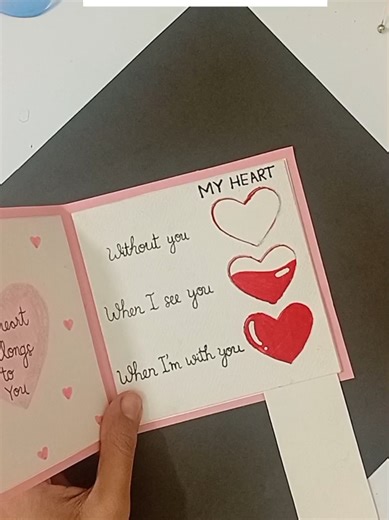 heart
longs
to
You
MY HEART
Without you
When I see you
When I'm with you